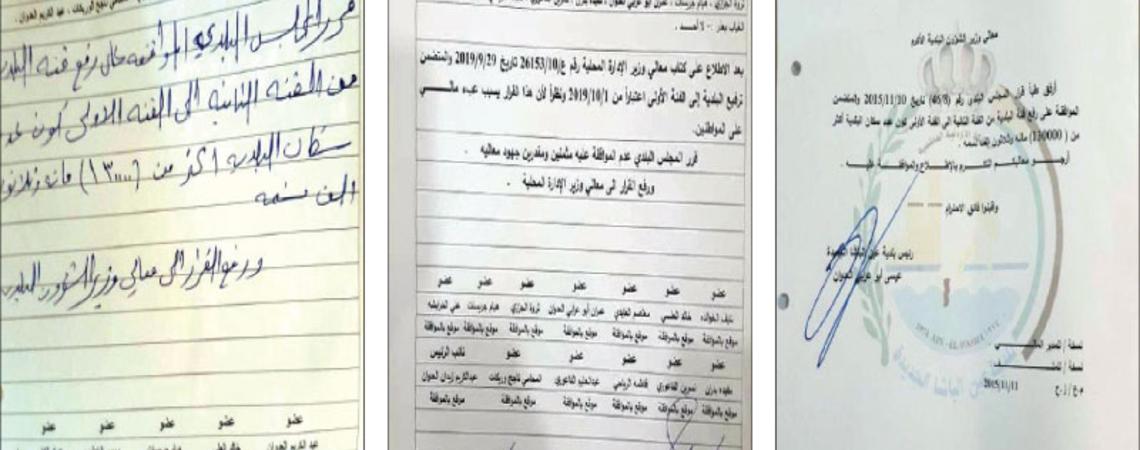 قرر المجلس البلدي الموافقة على رفع فئة البلدية
من الفئة الثانية الى الفئة الاولى كون عدد
سكان البلدية اكثر من (١٣٠٠٠٠) مائة وثلاثون
الف نسمة
ورفع القرار الى معالي وزير الشؤون البلدية
عضو عضو عضو عضو عضو
عبد الكريم الحنوان
الغياب بعذر :- لا أحد .
بعد الاطلاع على كتاب معالي وزير الإدارة المحلية رقم ع/26153/10 تاريخ 2019/9/29 والمتضمن
ترفيع البلدية إلى الفئة الأولى اعتباراً من 2019/10/1 ونظراً لأن هذا القرار يسبب عبء مالــــي
على المواطنين.
قرر المجلس البلدي عدم الموافقة عليه مثمنين ومقدرين جهود معاليه .
ورفع القرار الى معالي وزير الإدارة المحلية .
عضو عضو عضو عضو عضو عضو عضو
نايف الخوالده خالد معتصم العابدي عمران أبو عرابي العدوان ثروة الحزازي هيام جريسات علي
موقع بالموافقة موقع بالموافقة موقع بالموافقة موقع بالموافقة موقع بالموافقة موقع بالموافقة موقع بالموافقة
عضو عضو عضو عضو عضو نائب الرئيس
بدران نسرين الفاعوري فاطمه عبدالحليم الفاعوري المحامي ناجح وريكات عبدالكريم زيدان العدوان
موقع بالموافقة موقع بالموافقة موقع بالموافقة موقع بالموافقة موقع بالموافقة موقع بالموافقة
معالي وزير الشؤون البلدية الأكرم
أرفق طياً قرار المجلس البلدي رقم (46/8) تاريخ 2015/11/10 والمتضمن
الموافقة على رفع فئة البلدية من الفئة الثانية الى الفئة الأولى كون عدد سكان البلدية أكثر
من (130000) مائه وثلاثون الف نسمه .
أرجــو معاليكــم التكــرم بالإطــلاع والموافقــة عليــه .
وأقبلوا فائق الاحترام
رئيس بلدية عين الباشا الجديدة
عيسى أبو عرابي العدوان
نسخة / للمدير المالـــي
نسخة / للملــف
م.ع / ز.ح 2015/11/11